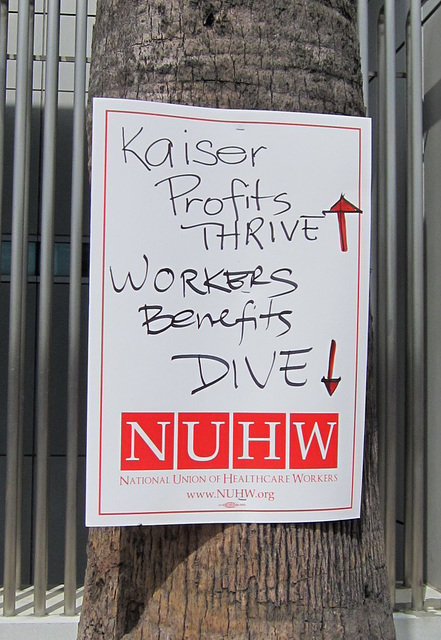 Kaiser
Profits
THRIVE
WORKERS
Benefits
DIVE
NUHW
NATIONAL UNION OF HEALTHCARE WORKERS
www.NUHW.org